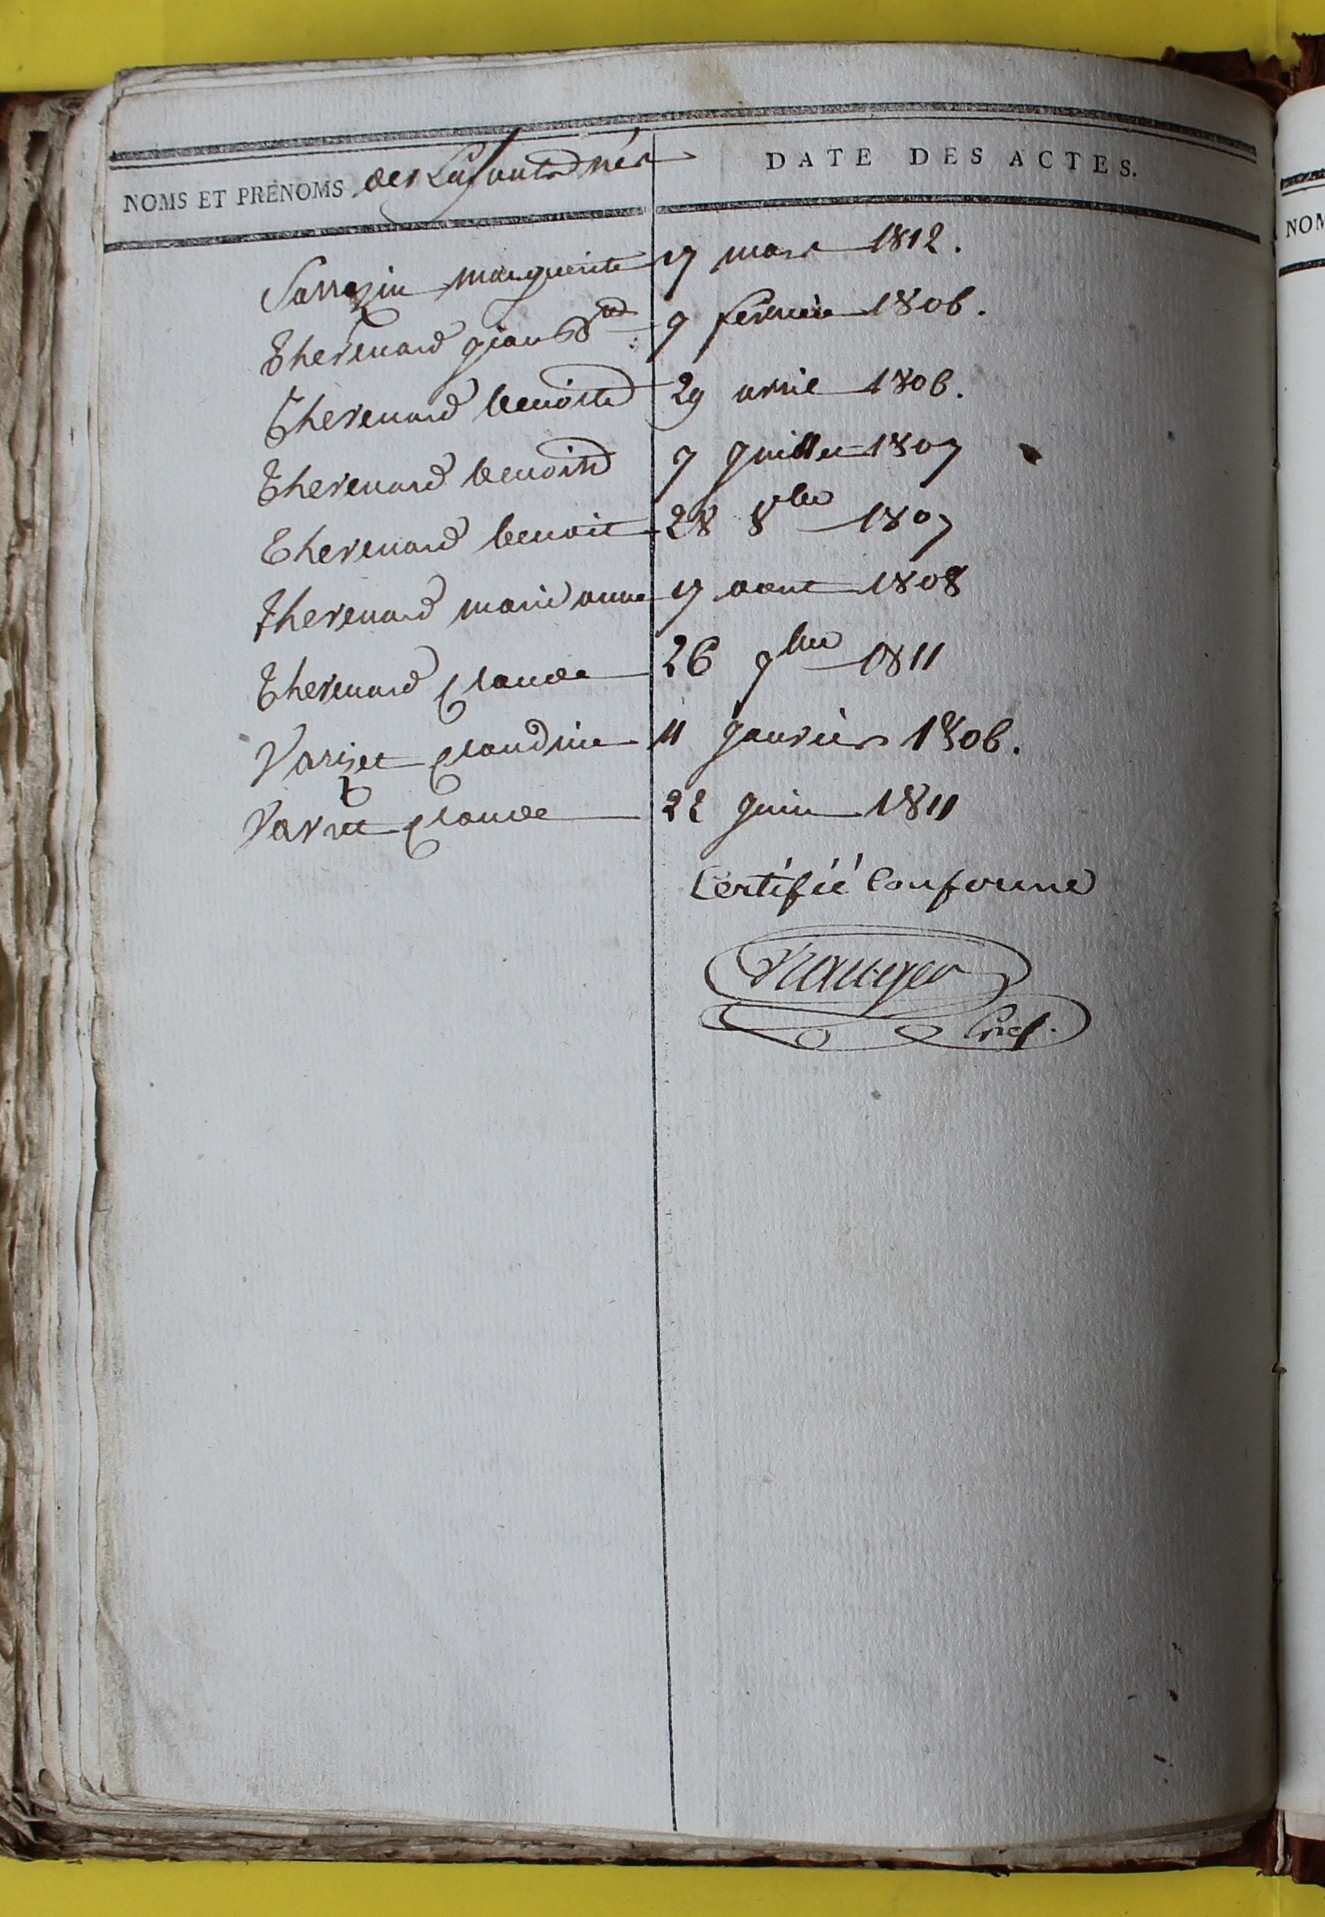 NOMS ET PRÉNOMS des Enfants nés DATE DES ACTES.
NOM
Sarrazin marguerite 17 mars 1812.
Thevenard jean Bte 9 fevrier 1806.
Thevenard benoite 29 avril 1806.
Thevenard benoite 7 juillet 1807
Thevenard benoit 28 8bre 1807
Thevenard marie anne 17 aout 1808
Thevenard claude 26 9bre 1811
Varizet claudine 11 janvier 1806.
claude 22 juin 1811
Certifié Conforme